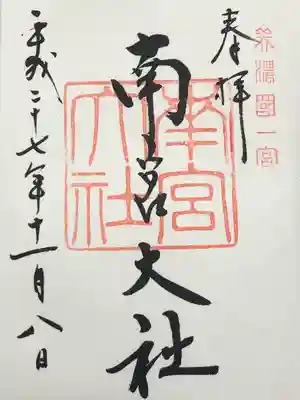 美濃國一宮
奉拝
南宮大社
南宮大社
平成二十七年十一月八日